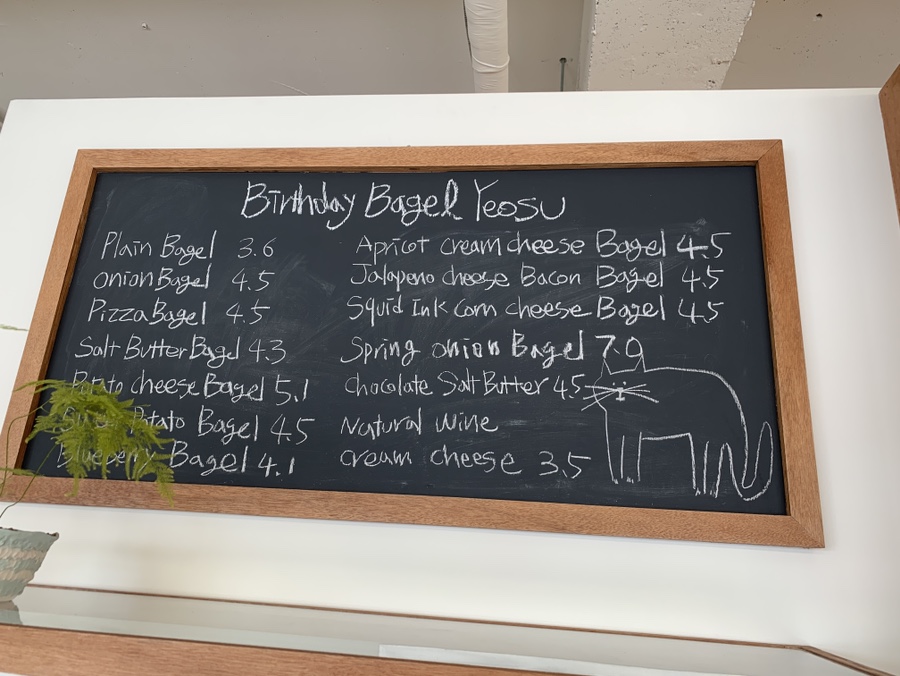 Birthday Bagel Yeosu
Plain Bagel 3.6
onion Bagel 4.5
Pizza Bagel 4.5
Salt Butter Bagel 4.3
Potato cheese Bagel 5.1
Potato Bagel 4.5
Blueberry Bagel 4.1
Apricot cream cheese Bagel 4.5
Jalapeno cheese Bacon Bagel 4.5
Squid Ink corn cheese Bagel 4.5
Spring onion Bagel 7.0
chocolate Salt Butter 4.5
Natural wine
cream cheese 3.5